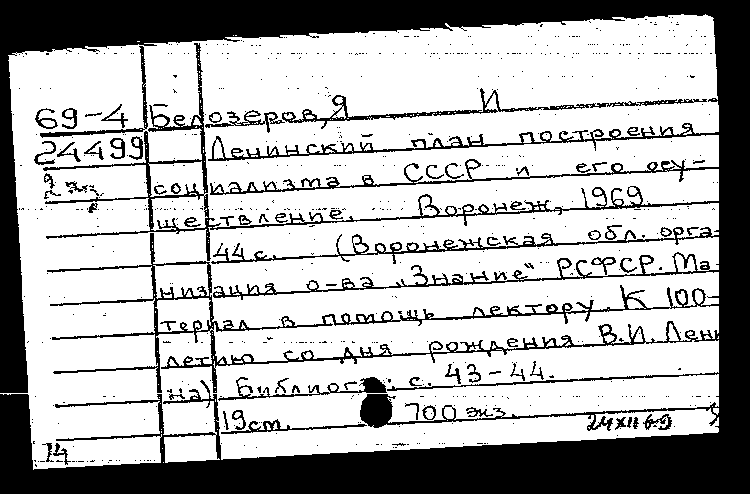 69-4 Белозеров, Я И
24499 Ленинский план построения
2 экз социализма в СССР и его осу-
ществление. Воронеж, 1969.
44 с. (Воронежская обл. орга-
низация о-ва „Знание" РСФСР. Ма-
териал в помощь лектору. К 100-
летию со дня рождения В.И. Лени
на) Библиогр.: с. 43-44.
19 см. 700 экз.
24 XII 69
14